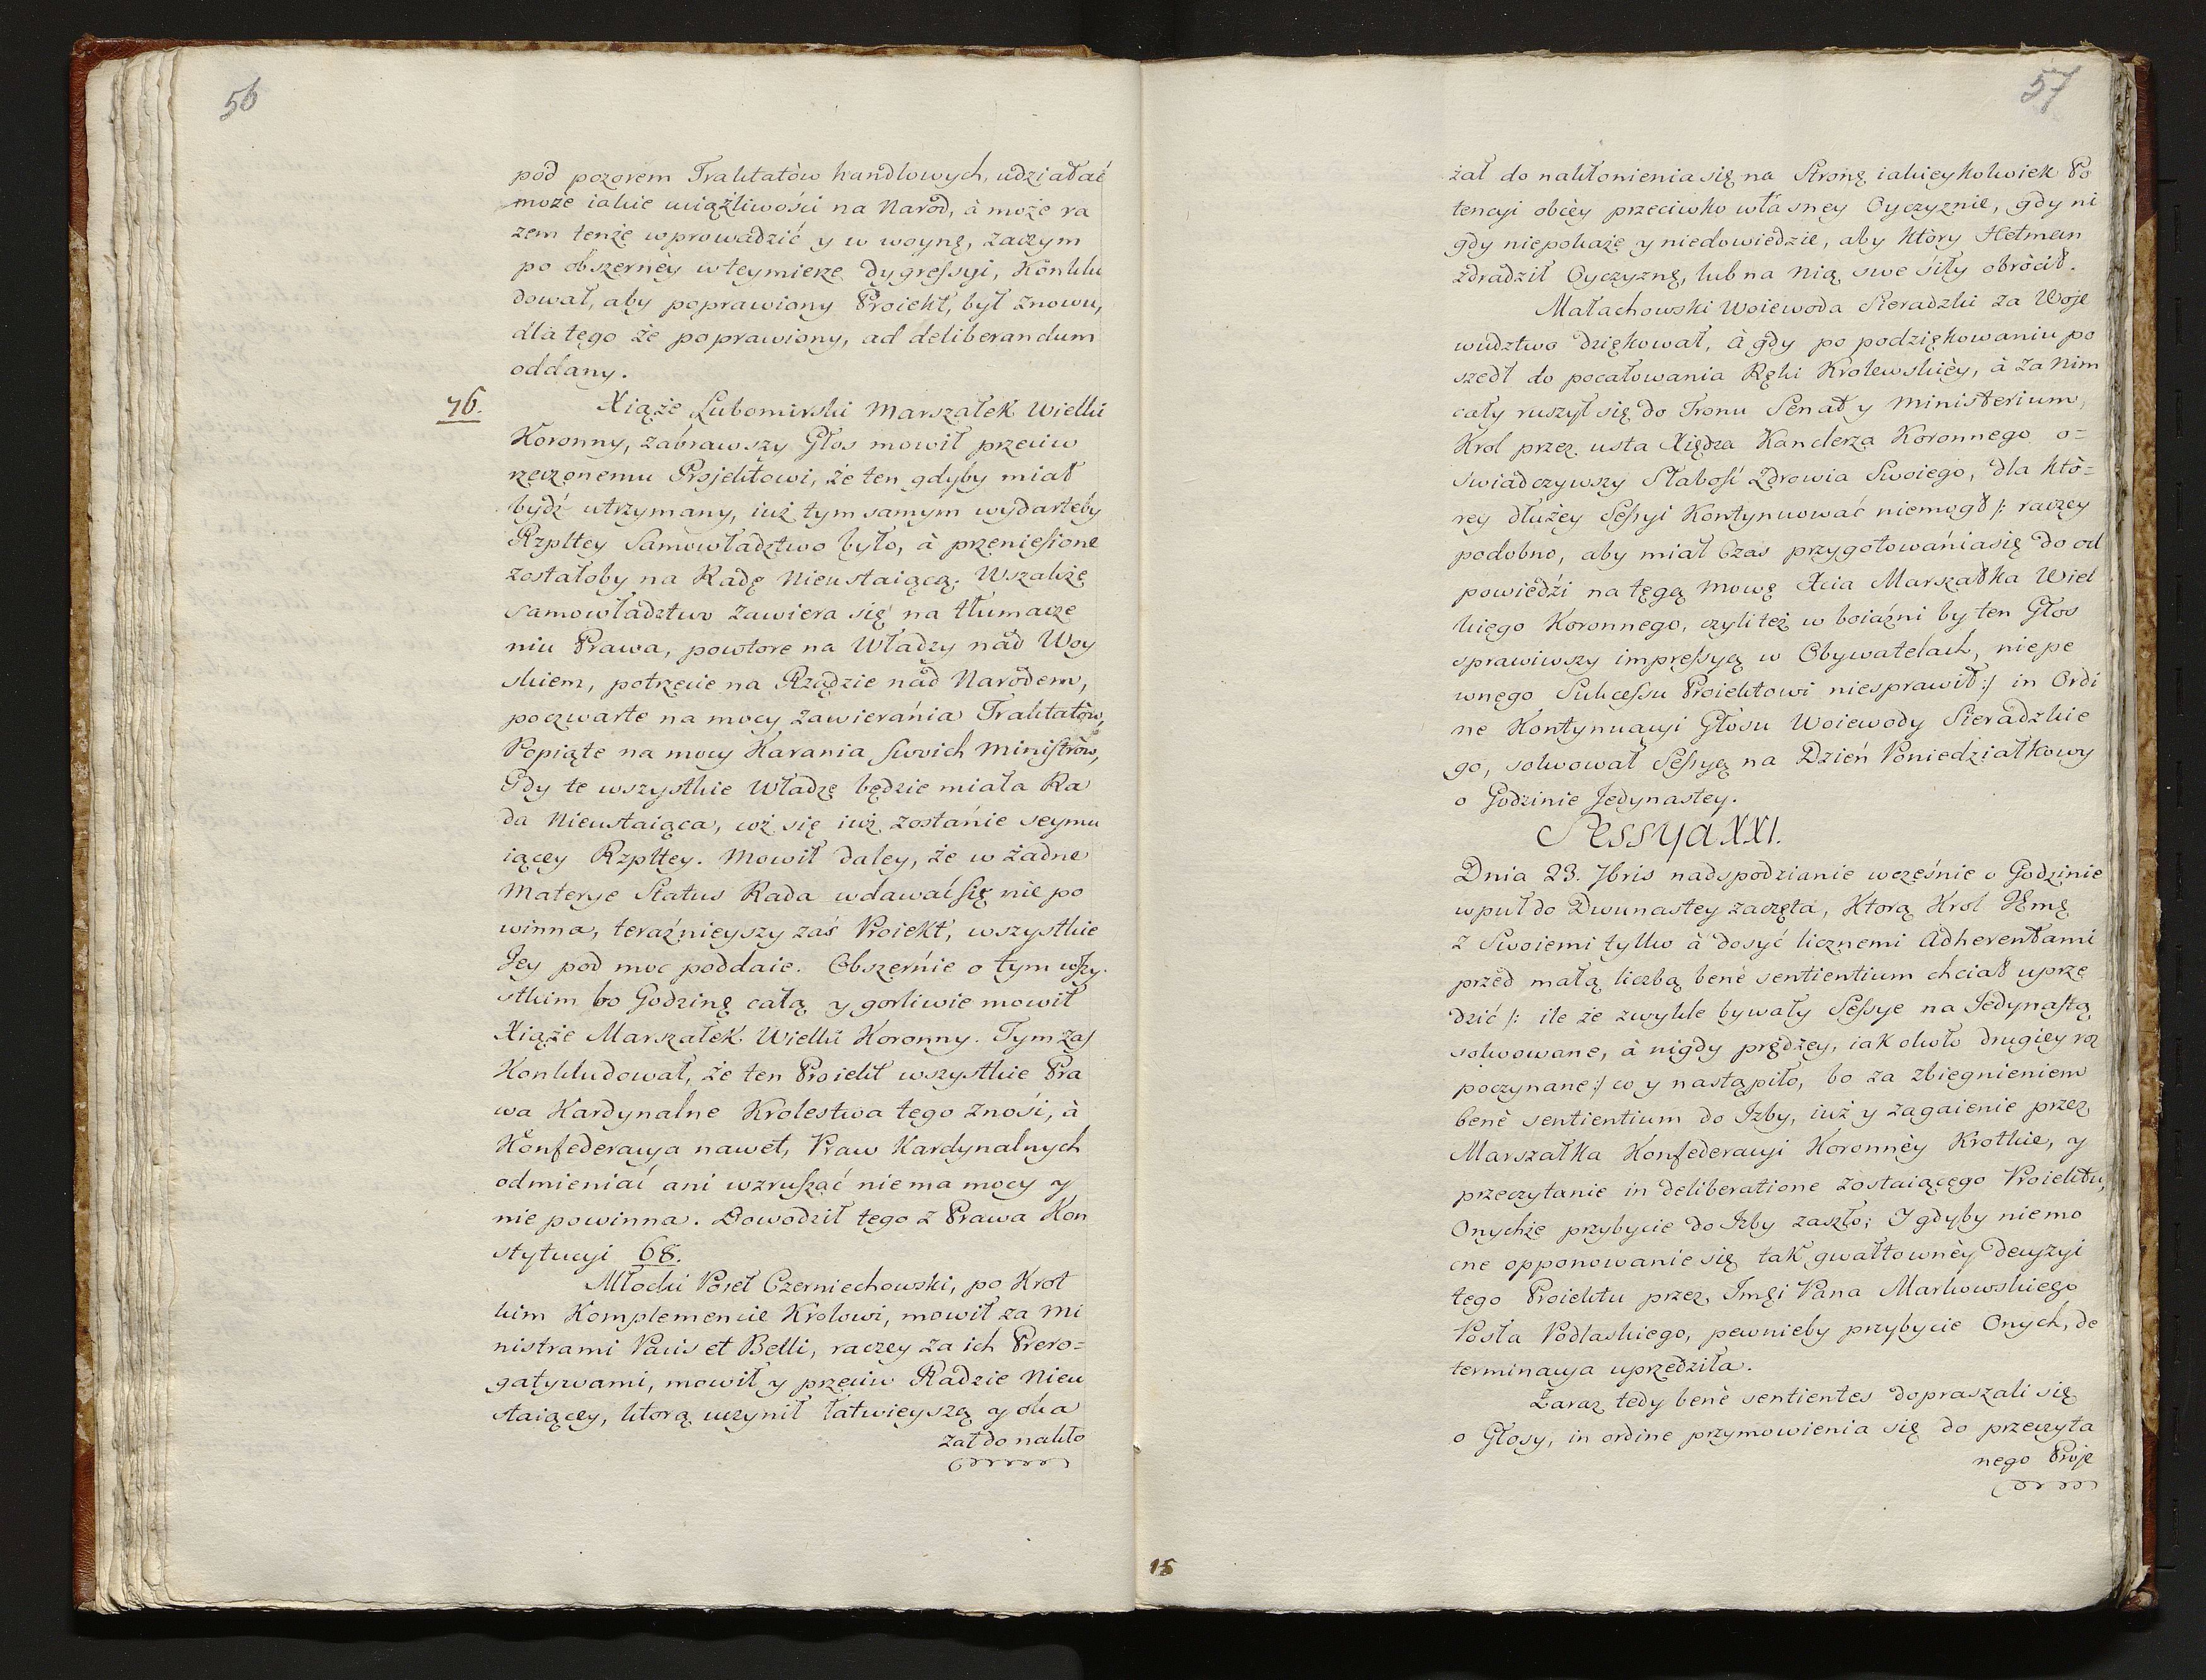 56
pod pozorem Traktatòw handlowych, udziałać
może iakie uciążliwości na Narod, à może ra
zem tenże wprowadzić y w woynę, zaczym
po obszernèy wteymierze dygressyi, Konklu
dował, aby poprawiony Proiekt, był znowu,
dla tego że poprawiony, ad deliberandum
oddany.
76.
Xiąże Lubomirski Marszałek Wielki
Koronny, zabrawszy Głos mowił przeciw
rzeczonemu Projektowi, że ten gdyby miał
bydź utrzymany, iuż tym samym wydarteby
Rzpltey Samowładztwo było, à przeniesione
zostałoby na Radę Nieustaiącą. Wszakże
samowładztwo zawiera się na tłumacze
niu Prawa, powtore na Władzy nad Woy
skiem, potrzecie na Rządzie nad Narodem,
poczwarte na mocy zawierańia Traktatòw,
Popiąte na mocy Karania swoich Ministròw,
Gdy te wszystkie Władzę będzie miała Ra
da Nieustaiąca, coż się iuż zostańie seymu
iącey Rzpltey. Mowił daley, że w żadne
Materye Status Rada wdawać się nie po
winna, teraźnieyszy zaś Proiekt, wszystkie
Jey pod moc poddaie. Obszerńie o tym wszy
stkim bo Godzinę całą y gorliwie mowił
Xiąże Marszałek Wielki Koronny. Tym zaś
Konkludował, że ten Proiekt wszystkie Pra
wa Kardynalne Krolestwa tego znośi, à
Konfederacya nawet, Praw Kardynalnych
odmieniać ani wzruszać niema mocy y
nie powinna. Dowodził tego z Prawa Kon
stytucyi 68.
Młocki Poseł Czerniechowski, po Krot
kim Komplemencie Krolowi, mowił za Mi
nistrami Pacis et Belli, raczey za ich Prero=
gatywami, mowił y przeciw Radzie Nieu
staiącey, ktorą uczynił łatwieyszą y oka
zał do nakło
57
żał do nakłonienia się na Stronę iakieykolwiek Po
tencyi obcèy przeciwko własney Oyczyznie, gdy ni
gdy niepokaże y niedowiedzie, aby ktòry Hetman
zdradził Oyczyznę, lub na Nią swe śiły obròcił.
Małachowski Woiewoda Sieradzki za Woje
wudztwo dziękował, à gdy po podziękowaniu po
szedł do pocałowania Ręki Krolewskièy, à za Nim
cały ruszył się do Tronu Senat y Ministerium,
Krol przez usta Xiędza Kanclerza Koronnego o=
swiadczywszy Słabość Zdrowia Swoiego, dla któ=
rey dłużey Sessyi Kontynuować niemogł /: raczey
podobno, aby miał Czas przygotowańia się do od
powiedźi na tęgą Mowę Xcia Marszałka Wiel
kiego Koronnego, czyli też w boiaźni by ten Głos
sprawiwszy impressyą w Obywatelach, niepe
wnego Sukcessu Proiektowi niesprawił :/ in Ordi
ne Kontynuacyi Głosu Woiewody Sieradzkie
go, solwował Sessyą na Dzień Poniedziałkowy
o Godzinie Jedynastey.
Sessya XXI.
Dnia 23. 7bris nadspodzianie wcześnie o Godzinie
wpuł do Dwunastey zaczęta, Ktorą Krol JEmę
z Swoiemi tylko à dosyć licznemi Adherentami
przed małą liczbą benè sentientium chciał uprze
dzić /: ile że zwykle bywały Sessye na Jedynastą
solwowane, à nigdy prędzey, iak około drugiey roz
poczynane :/ co y nastąpiło, bo za zbiegnieniem
benè sentientium do Izby, iuż y zagaienie przez
Marszałka Konfederacyi Koronnèy Krotkie, y
przeczytanie in deliberatione zostaiącego Proiektu,
Onychże przybycie do Izby zaszło; I gdyby niemo
cne opponowanie się tak gwałtownèy decyzyi
tego Proiektu przez Imgi Pana Markowskiego
Posła Podlaskiego, pewnieby przybycie Onych, de
terminacya uprzedziła.
Zaraz tedy benè sentientes dopraszali się
o Głosy, in ordine przymowienia się do przeczyta
nego Proje
15